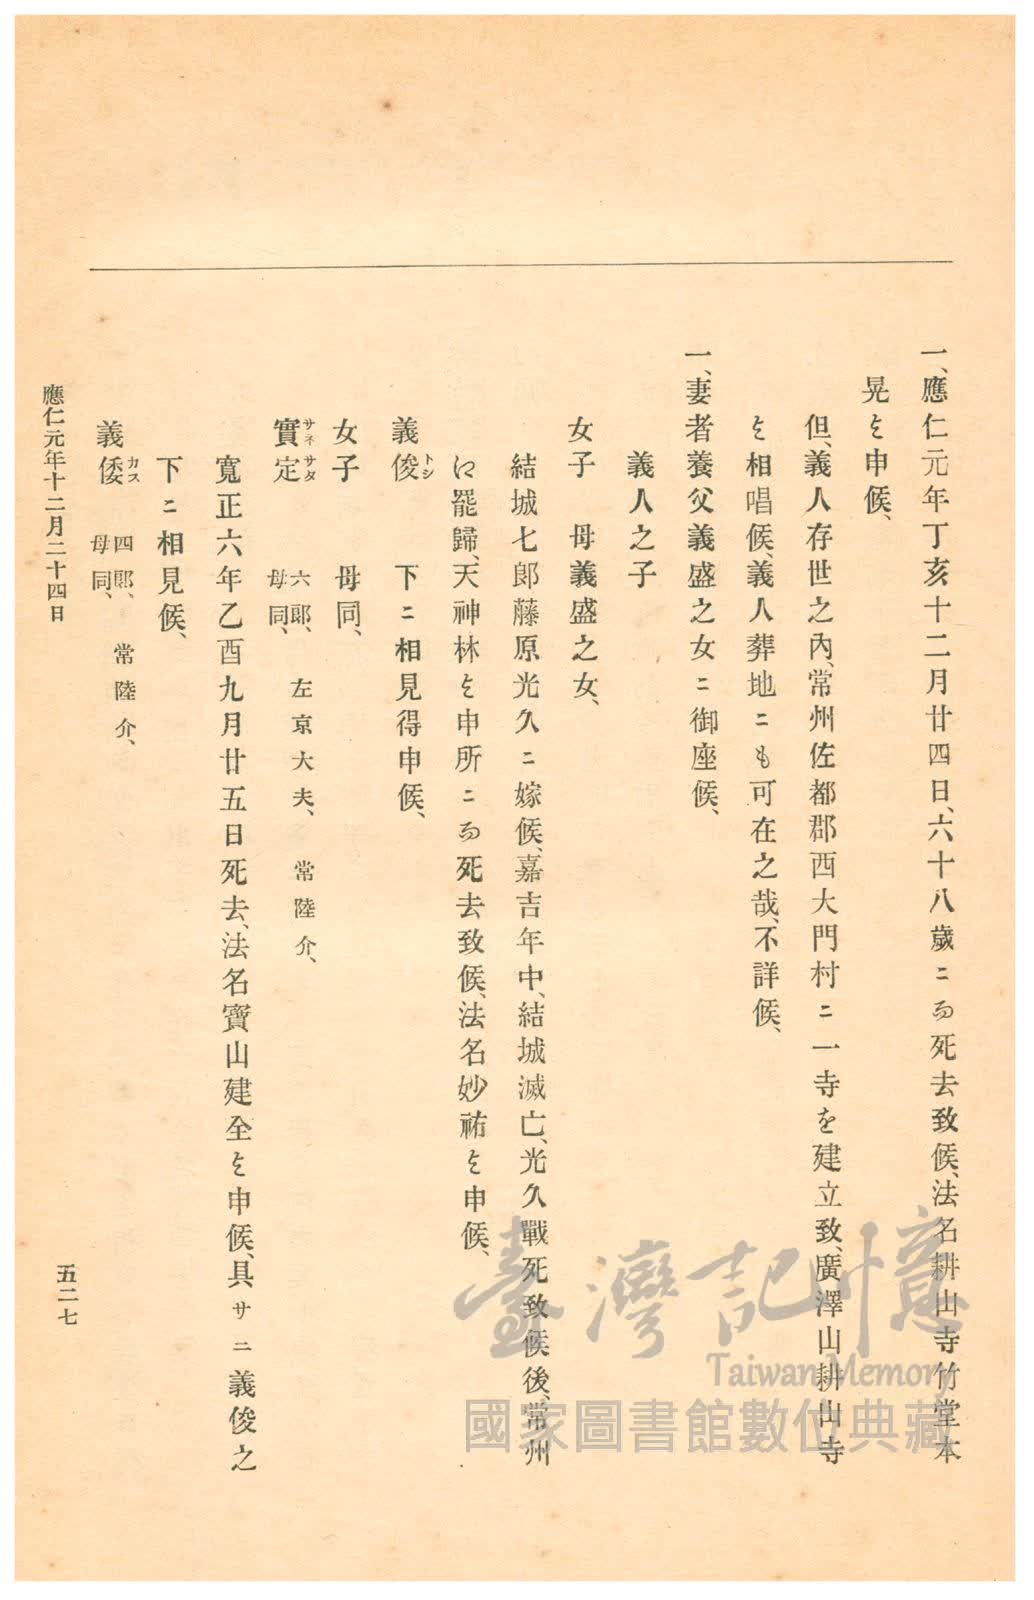 一、應仁元年丁亥十二月廿四日、六十八歲ニ而死去致候、法名耕山寺竹堂本
晃と申候、
但、義人存世之內、常州佐都郡西大門村ニ一寺を建立致、廣澤山耕山寺
と相唱候、義人葬地ニも可在之哉、不詳候、
一、妻者養父義盛之女ニ御座候、
義人之子
女子　母義盛之女、
結城七郎藤原光久ニ嫁候、嘉吉年中、結城滅亡、光久戰死致候後、常州
江罷歸、天神林と申所ニ而死去致候、法名妙祐と申候、
義俊トシ　下ニ相見得申候、
女子　母同、
實定サネサタ　六郎、　左京大夫、　常陸介、
母同、
寬正六年乙酉九月廿五日死去、法名寶山建全と申候、具サニ義俊之
下ニ相見候、
義倭カス　四郎、　常陸介、
母同、
應仁元年十二月二十四日
五二七
臺灣記憶
Taiwan Memory
國家圖書館數位典藏